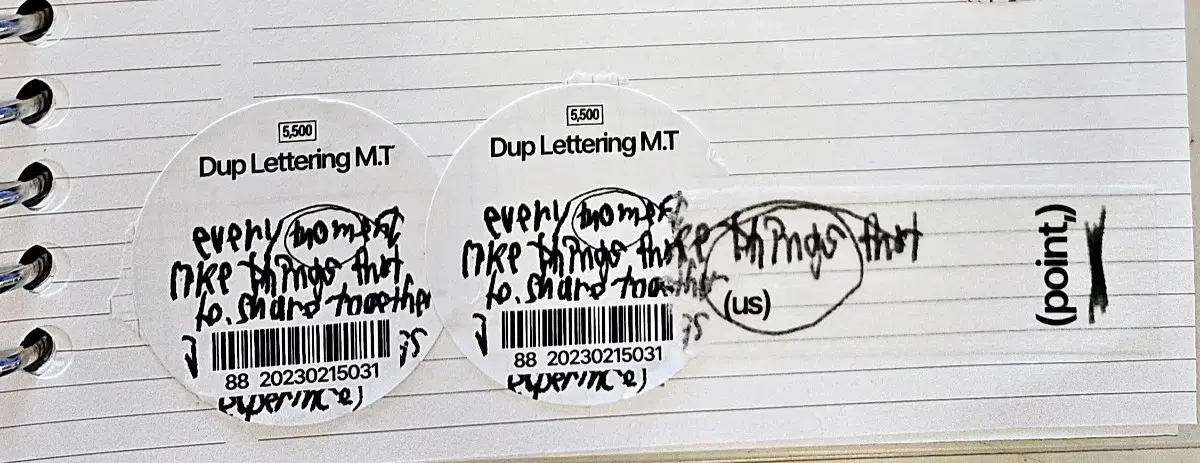 5,500
Dup Lettering M.T
every moment
like things that
to. share together
88 20230215031
experince)
5,500
Dup Lettering M.T
every moment
like things that
to. share together
88 20230215031
experince)
things that
(us)
(point,)